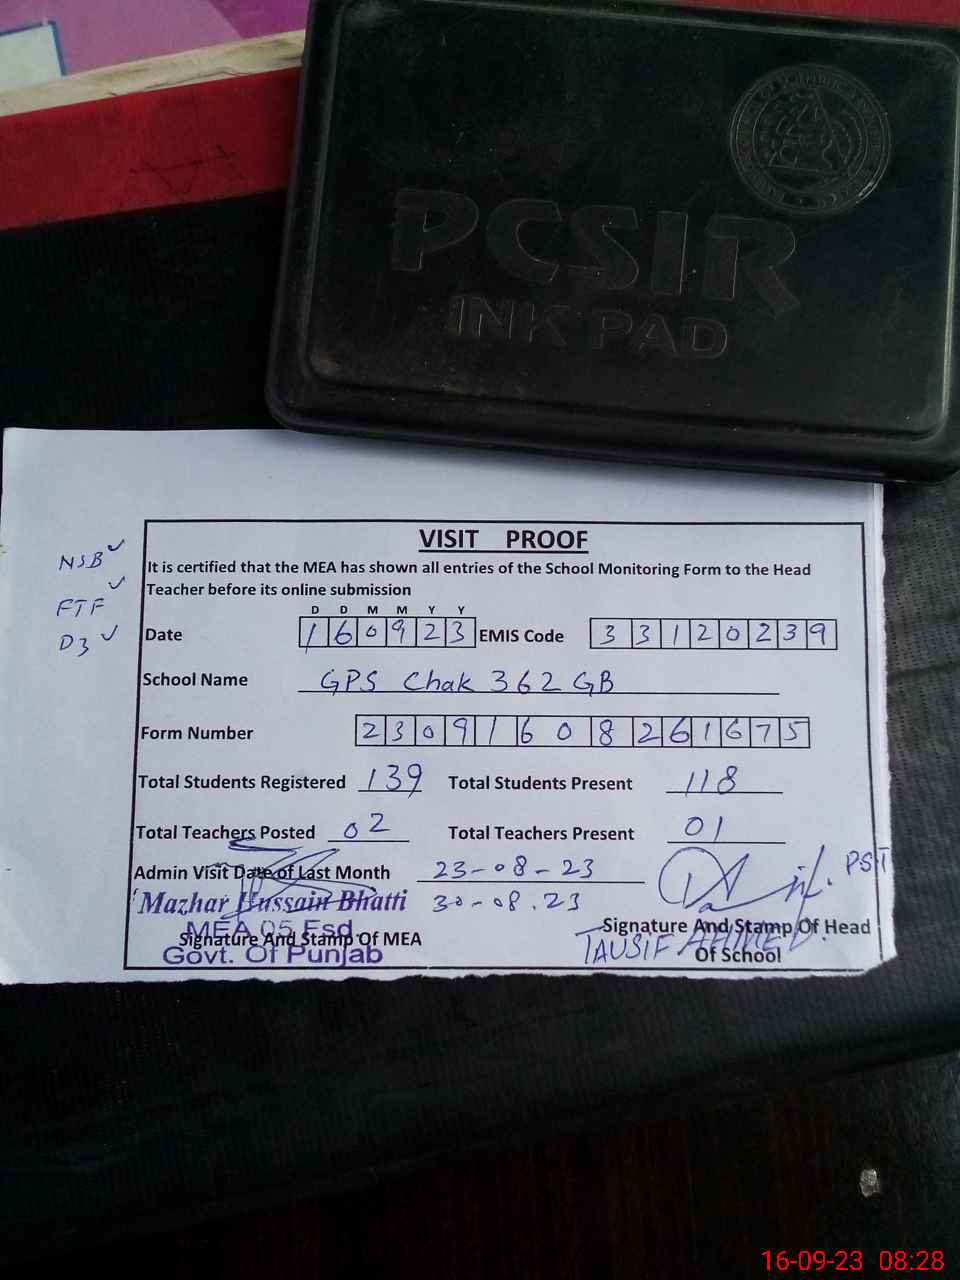 PCSIR
INK PAD
VISIT PROOF
NSB ✓
It is certified that the MEA has shown all entries of the School Monitoring Form to the Head
Teacher before its online submission
FTF ✓
D D M M Y Y
D3 ✓
Date 160923 EMIS Code 33120239
School Name GPS Chak 362 GB
Form Number 23091608261675
Total Students Registered 139 Total Students Present 118
Total Teachers Posted 02 Total Teachers Present 01
PST
Admin Visit Date of Last Month 23-08-23
Mazhar Hussain Bhatti 30-08.23
MEA 05 Fsd
Govt. Of Punjab
Signature And Stamp Of MEA
Signature And Stamp Of Head
Of School
TAUSIF AHMED.
16-09-23 08:28